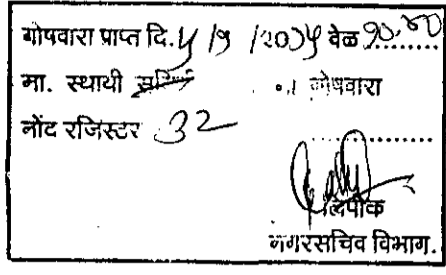 गोषवारा प्राप्त दि. ५/१/२००५ वेळ १०.४०
मा. स्थायी समिती गोषवारा
नोंद रजिस्टर ३२
लिपीक
नगरसचिव विभाग.